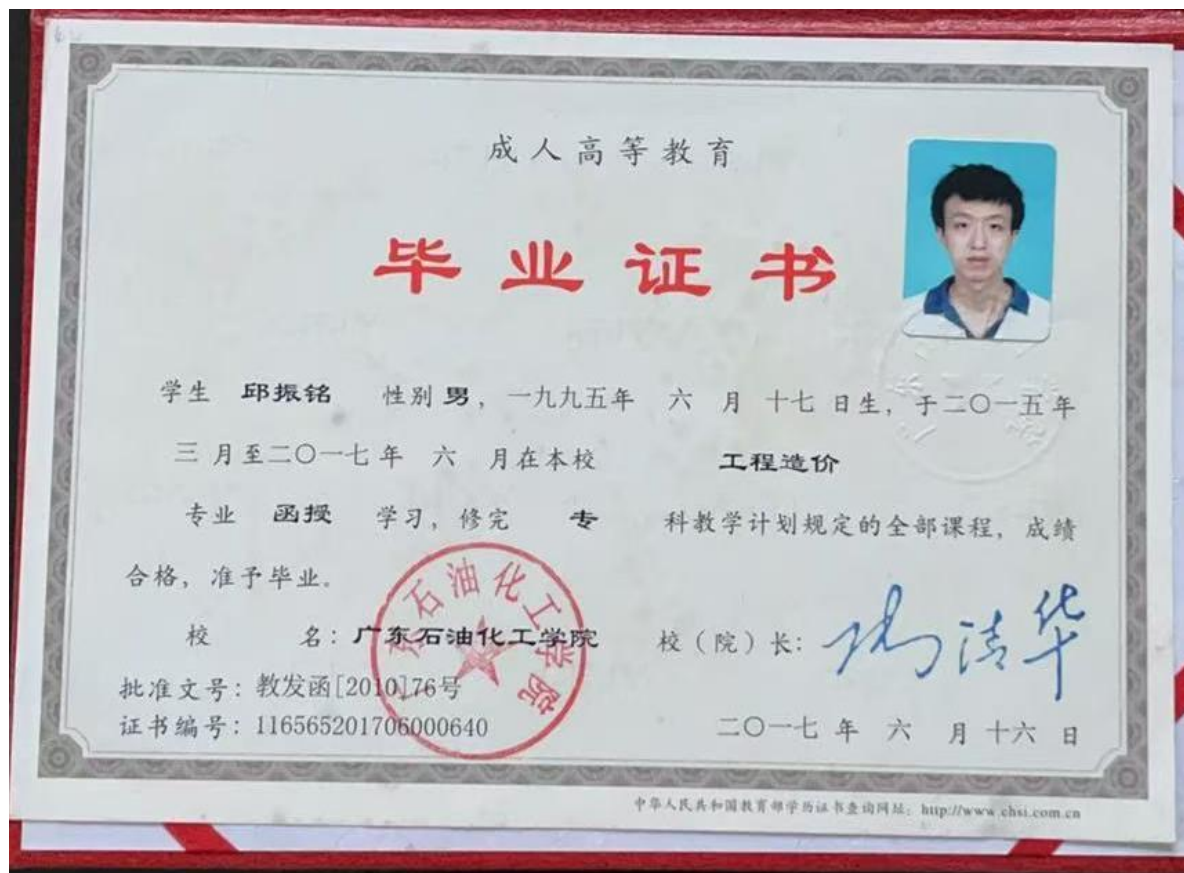 成人高等教育
毕业证书
学生 邱振铭 性别 男，一九九五年 六 月 十七 日生，于二〇一五年
三 月至二〇一七年 六 月在本校 工程造价
专业 函授 学习，修完 专 科教学计划规定的全部课程，成绩
合格，准予毕业。
校 名：广东石油化工学院 校（院）长：
批准文号：教发函[2010]76号
证书编号：116565201706000640 二〇一七年 六 月 十六 日
广东石油化工学院
中华人民共和国教育部学历证书查询网址：http://www.chsi.com.cn